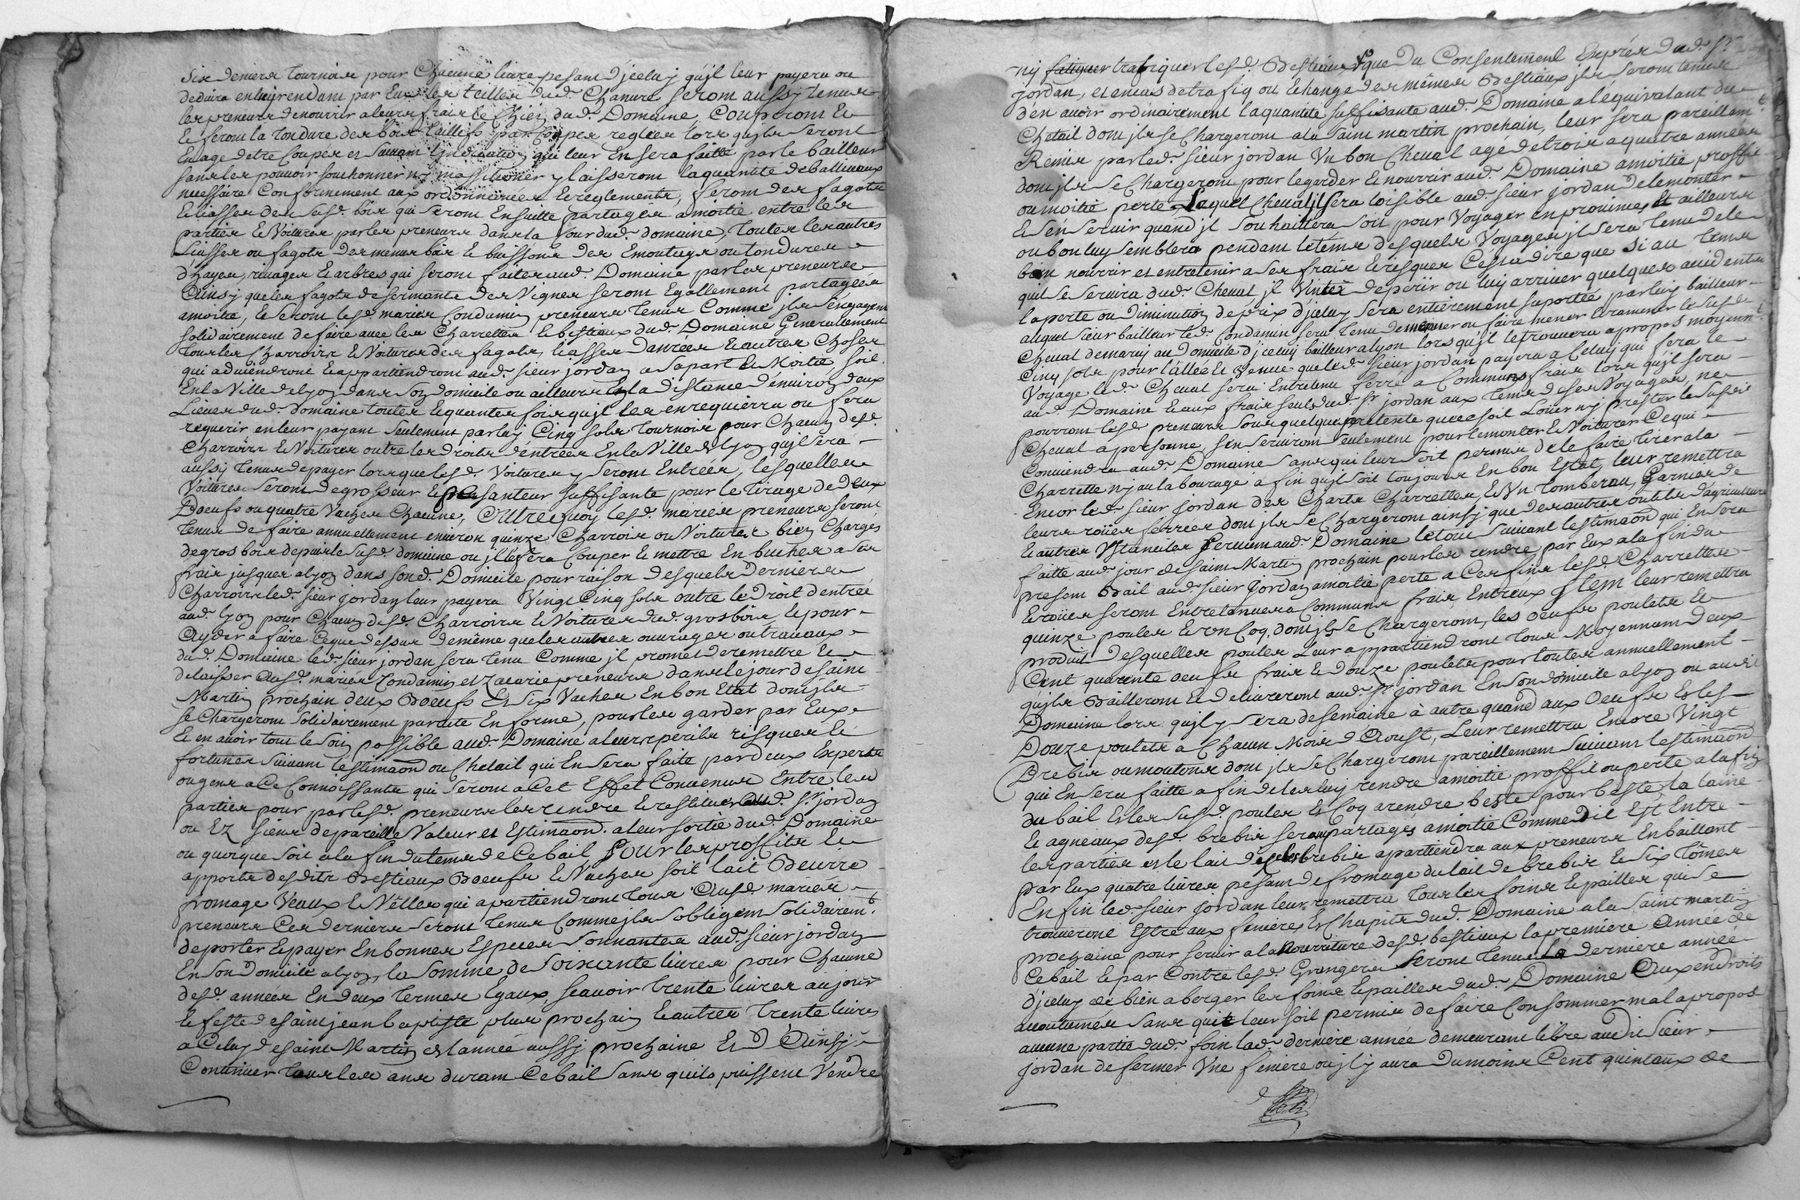 Six deniers tournois pour Chacune livre pesant d'jceluy qu'il leur payera ou
deduira en luy rendant par Eux les tilles dud. Chanvre seront aussy tenus
les preneurs de nourrir a leurs frais le Chien dud. Domaine, Couperont &
& feront la tondure des bois taillis par Coupes reglées lors qu'ils seront
En age d'etre Coupés et Suivant Lindication qui leur En sera faitte par le bailleur
sans les pouvoir y laisseront la quantité de balliveaux
necessaire Conformement aux ordonnances & reglements, feront des fagots
& liasses des susd. bois qui seront Ensuitte partagés a moitié entre les
parties & Voiturés par les preneurs dans la Cour dud. domaine, toutes les autres
Liasses ou fagots des menus bois & buissons des Emoutage ou tondures
d'hayes, rivages & arbres qui seront faites aud. Domaine par les preneurs
Ainsy que les fagots de sermants des Vignes seront Egallement partagées
amoitié, & seront lesd. mariés Condamin preneurs tenus Comme ils s'engagent
solidairement de faire avec les Charrettes & bestiaux dud. Domaine Generalement
tous les Charroirs & Voitures des fagots, liasses danrées & autres Choses
qui adviendront & appartiendront aud. sieur jordan a sa part & Moitié soit
En la Ville de Lyon dans son domicile ou ailleurs En la distance d'environ deux
Lieues dud. domaine toutes & quantes fois qu'il les en requierra ou fera
requerir en leur payant seulement par luy Cinq sols tournois pour Chacun desd.
Charroirs & Voitures outre les droits d'entrées En la Ville de Lyon qu'il sera
aussy tenu de payer lors que lesd. Voitures y seront Entrées, lesquelles
Voitures seront de grosseur & pesanteur suffisante pour le tirage de deux
Boeufs ou quatre Vaches Chacune, Outre quoy lesd. mariés preneurs seront
tenus de faire annuellement environ quinze Charrois ou Voitures bien Chargés
de gros bois depuis le susd. domaine ou il les fera Couper & mettre En buches a ses
frais jusques a lyon dans sond. Domicile pour raison desquels derniers
Charroirs led. sieur Jordan leur payera Vingt Cinq sols outre le Droit d'entrée
aud. lyon pour Chacun desd. Charroirs & Voitures dud. gros bois, & pour
Ayder a faire Ce que dessus de même que les autres ouvrages ou travaux
dud. Domaine led. sieur jordan sera tenu Comme il promet de remettre &
delaisser Ausd. mariés Condamin et Zacarie preneurs dans le jour de saint
Martin prochain deux Boeufs & six Vaches En bon Etat dont ils
se Chargeront solidairement par acte En forme, pour les garder par Eux
& en avoir tout le soin possible aud. Domaine a leurs perils risques &
fortunes suivant lestimaon ou Chetail qui En sera faite par deux Experts
ou gens a ce Connoissants qui seront a Cet Effet Convenus Entre les
parties pour par lesd. preneurs les rendre & restituer aud. Sr. jordan
ou Ez siens de pareille Valeur et Estimaon. a leur sortie dud. Domaine
ou quoique soit a la fin du tems de Ce bail Pour les proffits &
apports desdits Bestiaux Boeufs & Vaches soit lait Beurre
fromage Veaux & Velles qui apartiendront tous Ausd. mariés
preneurs Ces derniers seront tenus Comme ils s'obligent solidairemt.
de porter & payer En bonnes Especes sonnantes aud. sieur jordan
En son Domicile a lyon, la somme de soixante livres pour Chacune
desd. années En deux termes Egaux, scavoir trente livres au jour
& feste de saint jean baptiste plus prochain & autres trente livres
a Celuy de saint Martin et lannée aussy prochaine Et Ainsy
Continuer tous les ans durant Ce bail sans qu'ils puissent Vendre
ny trafiquer lesd. Bestiaux que du Consentement Exprés dud. Sr.
Jordan, et en Cas de trafiq ou Echange des mêmes Bestiaux ils seront tenus
d'en avoir ordinairement la quantité suffisante aud. Domaine a lequivalant du
Chetail dont ils se Chargeront a la saint martin prochain, leur sera pareillemt.
Remis par led. sieur jordan Un bon Cheval agé de trois a quatre années
dont ils se Chargeront pour le garder & nourrir aud. Domaine a moitié proffit
ou moitié perte, Lequel Cheval il sera loisible aud. sieur Jordan de le monter
& s'en servir quand il souhaittera soit pour Voyager en provinces et ailleurs
ou bon luy semblera pendant le tems desquels Voyages il sera tenu de le
bien nourrir et entretenir a ses frais & risques Cest a dire que si au tems
qu'il se servira dud. Cheval il Vinte de perir ou luy arriver quelques accidents
la perte ou diminution de prix d'jceluy sera entierement suportée par led. bailleur
auquel sieur bailleur led. Condamin sera tenu de mener ou faire mener & ramener le susd.
Cheval de maray au Domicile d'jceluy bailleur a lyon lors qu'il le trouvera a propos moyennt.
Cinq sols pour l'allée & Venue que led. sieur jordan payera a Celuy qui fera le
Voyage led. Cheval sera Entretenu ferré a Communs frais lors qu'il sera
aud. Domaine & aux frais seuls dud. Sr jordan aux tems de ses Voyages, ne
pourront lesd. preneurs sous quelque pretexte que ce soit Louer ny prester le susd.
Cheval a personne, s'en serviront seulement pour le monter & Voiturer Ce qui
Conviendra aud. Domaine sans qu'il leur soit permis de le faire tirer a la
Charrette ny au labourage a fin qu'il soit toujours En bon Etat, leur remettra
Encor led. sieur Jordan des Charts Charrettes, & Un tombereau, garnies de
leurs roües ferrées dont ils se Chargeront ainsy que des autres outils d'agriculture
& autres Ustancilles servant aud. Domaine le tout suivant lestimaon qui En sera
faitte aud. jour de saint Martin prochain pour les rendre par Eux a la fin du
present Bail aud. sieur Jordan a moitié perte a Ces fins lesd. Charrettes
& roües seront Entretenues a Communs frais Entreux Item leur remettra
quinze poules & un Coq, dont ils se Chargeront, les oeufs poulets &
produit desquelles poules Leur appartiendront tous Moyennant deux
Cent quarante oeufs frais & douze poulets pour toutes annuellement
qu'ils Bailleront & delivreront aud. Sr. Jordan En son domicile a lyon ou audit
Domaine lors qu'il y sera de semaine à autre quand aux Oeufs & les
Douze poulets a Chacun Mois d'Aoust, Leur remettra Encore Vingt
Brebis ou moutons dont ils se Chargeront pareillement suivant lestimaon
qui En sera faitte a fin de les luy rendre a moitié proffit ou perte a la fin
du bail & les susd. poules & Coq a rendre beste pour beste, la laine
& agneaux desd. brebis seront partagés a moitié Comme dit est Entre
les parties et le lait desd. brebis apartiendra aux preneurs En baillant
par Eux quatre livres pesant de fromage du lait de brebis & six tômes
En fin led. sieur Jordan leur remettra tous les foins & pailles qui se
trouveront Estre aux fenieres Et Chapits dud. Domaine a la saint martin
prochaine pour servir a la nourriture desd. bestiaux la premiere Année de
Ce bail & par Contre lesd. Grangers seront tenus la derniere année
d'jceluy de bien aberger les foins & pailles dud. Domaine Aux endroits
accoutumés sans qu'il leur soit permis de faire Consommer mal apropos
aucune partie dud. foin lad. derniere année demeurant libre audit sieur
Jordan de fermer Une feniere ou il y aura du moins Cent quintaux de